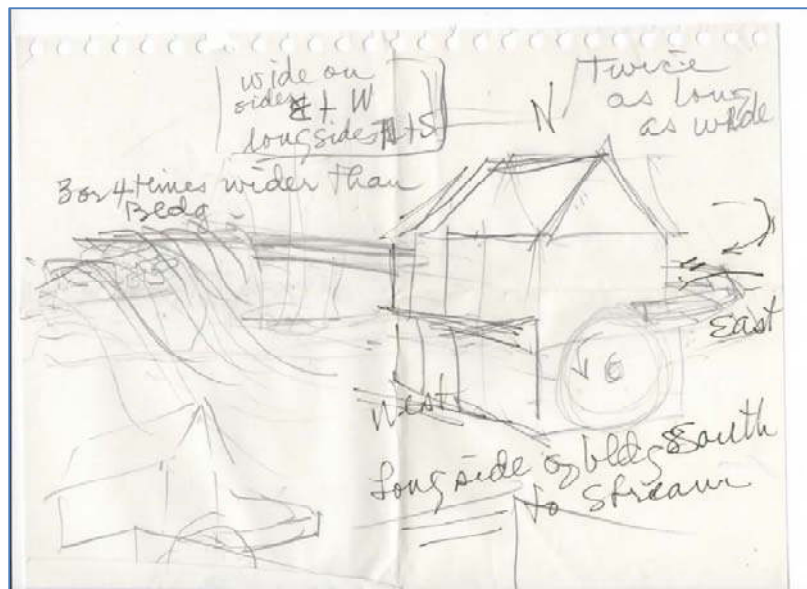 wide on
sides E + W
long sides N+S
N
Twice
as long
as wide
3 or 4 times wider than
Bldg
East
West
Long side of bldg South
to stream